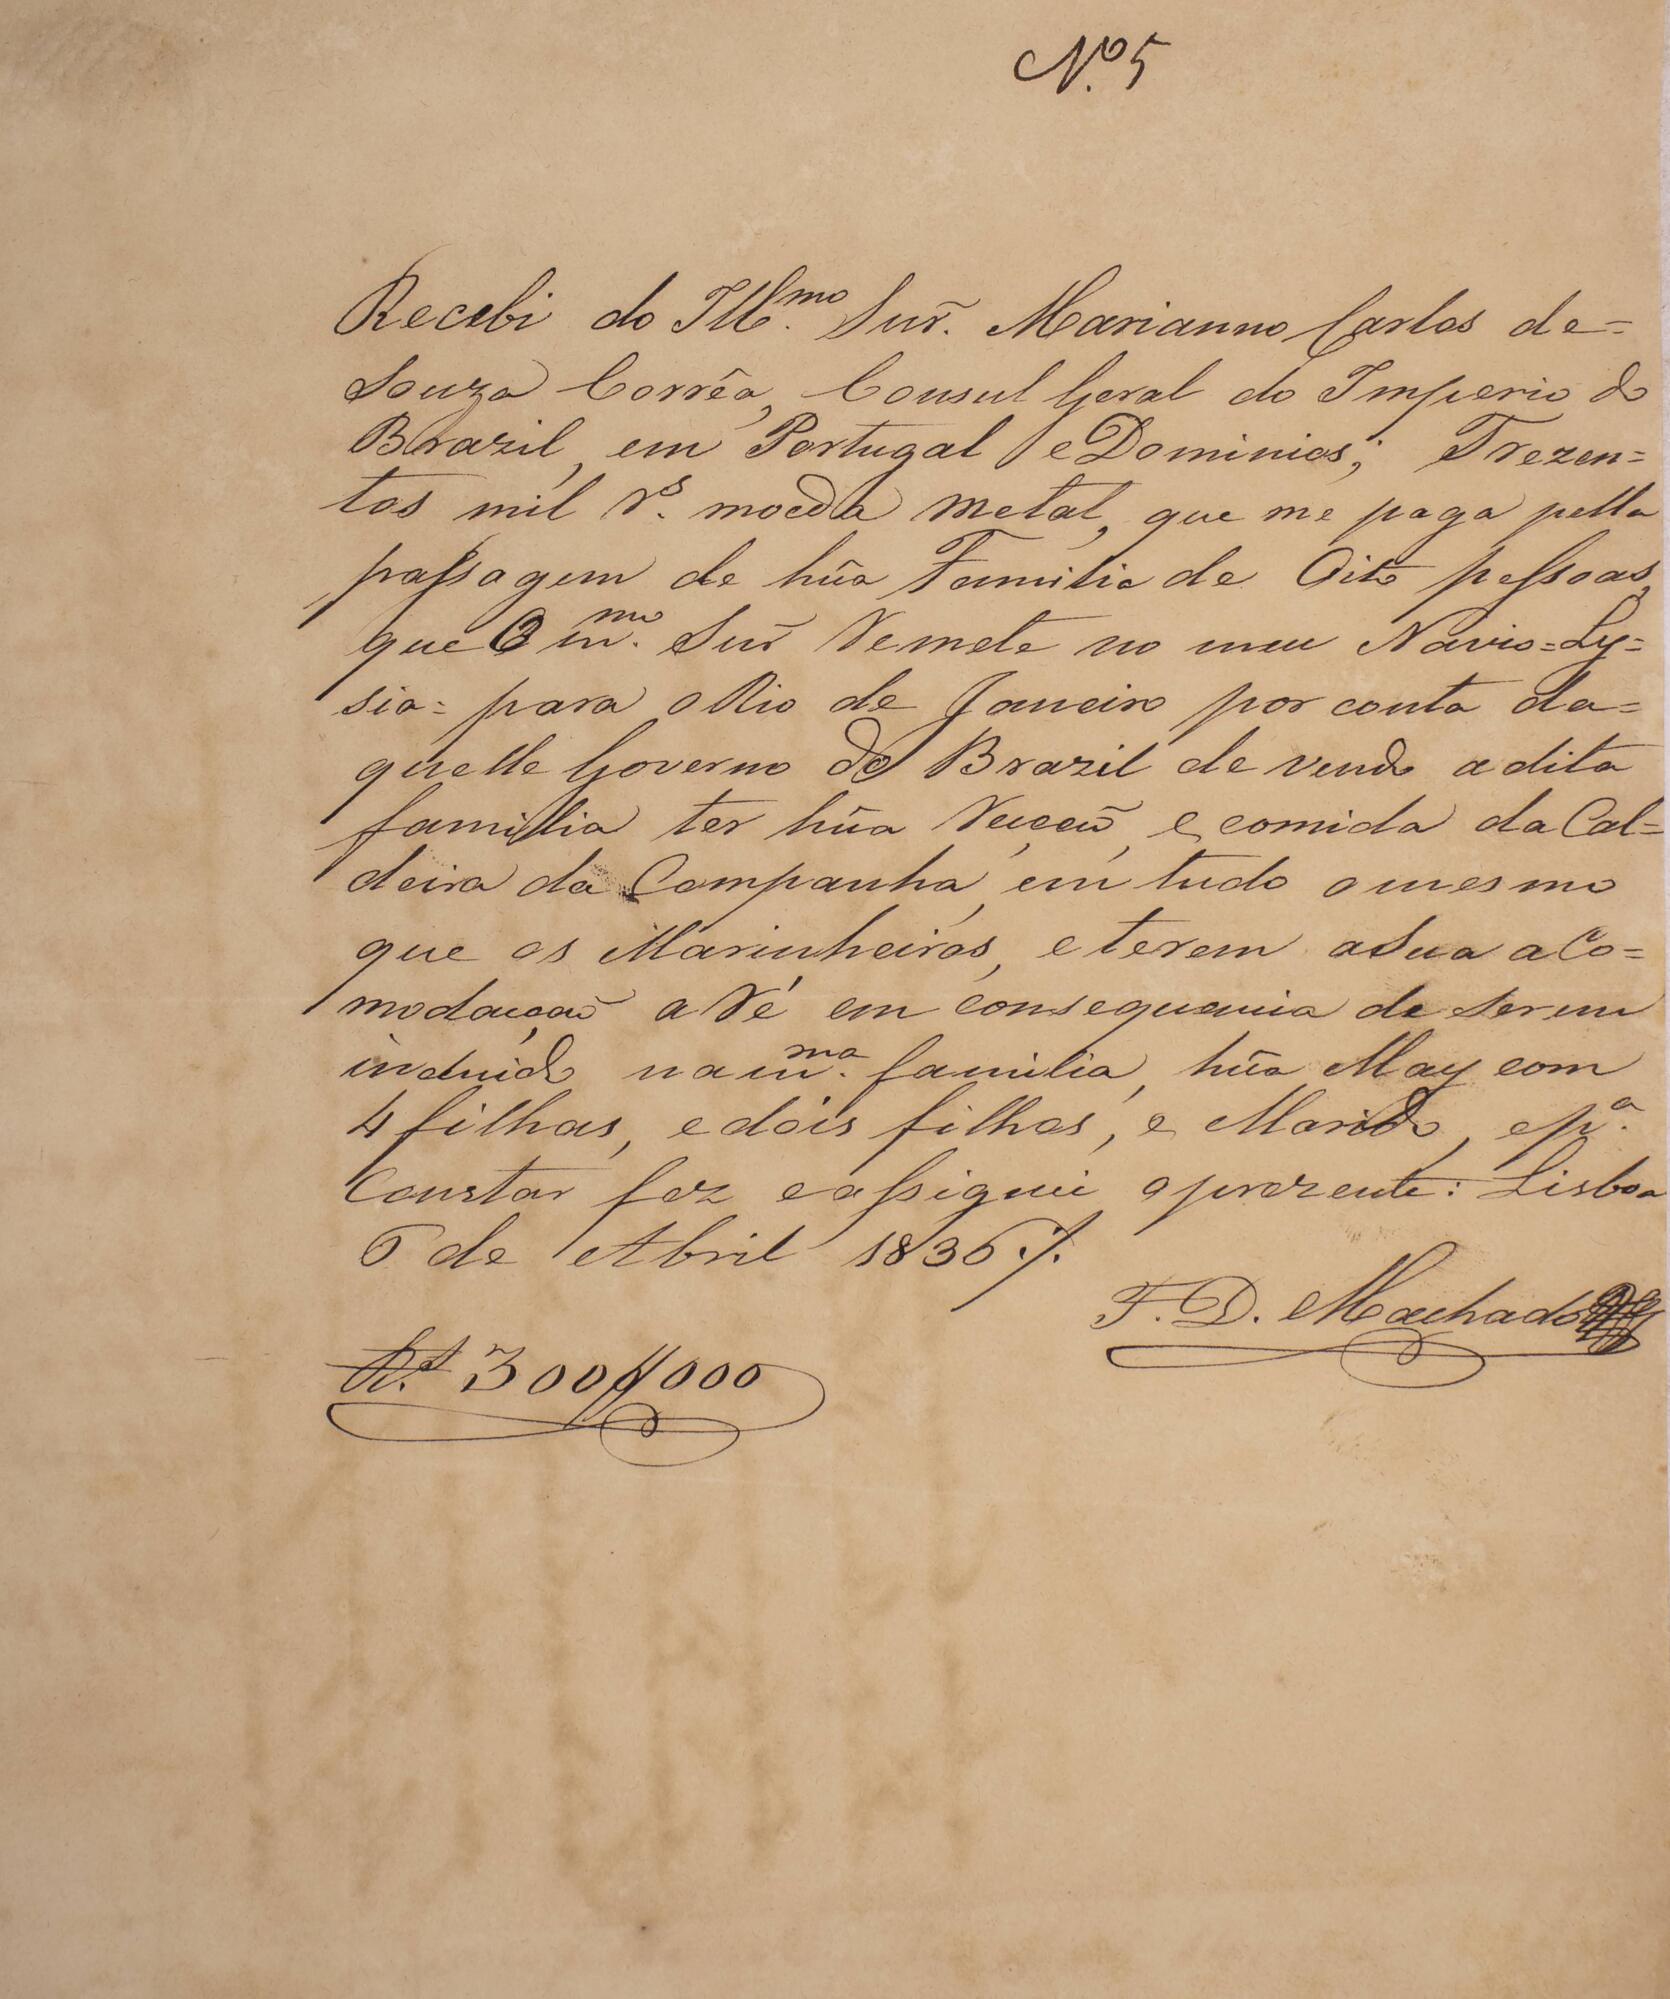 Nº. 5
Recebi do Illmo. Snr̃. Marianno Carlos de=
Souza Corrêa, Consul Geral do Imperio do
Brazil, em Portugal e Dominios; Trezen=
tos mil rs. moeda metal, que me paga pella
passagem de hũa Familia de Oito pessoas,
que O mmo. Snr̃ remete no meu Navio=Ly=
sia= para o Rio de Janeiro por conta da=
quelle Governo do Brazil devendo a dita
familia ter hũa reçaõ, e comida da Cal=
deira da Companha, em tudo o mesmo
que os Marinheiros, e terem a sua aCo=
modaçaõ a ré em consequencia de serem
incluido na mma. familia, hũa May com
4 filhas, e dois filhos, e Marido, e pa.
Constar fez e assignei o prezente: Lisboa
6 de Abril 1836 ./.
F. D. Machado
Rs. 300$000